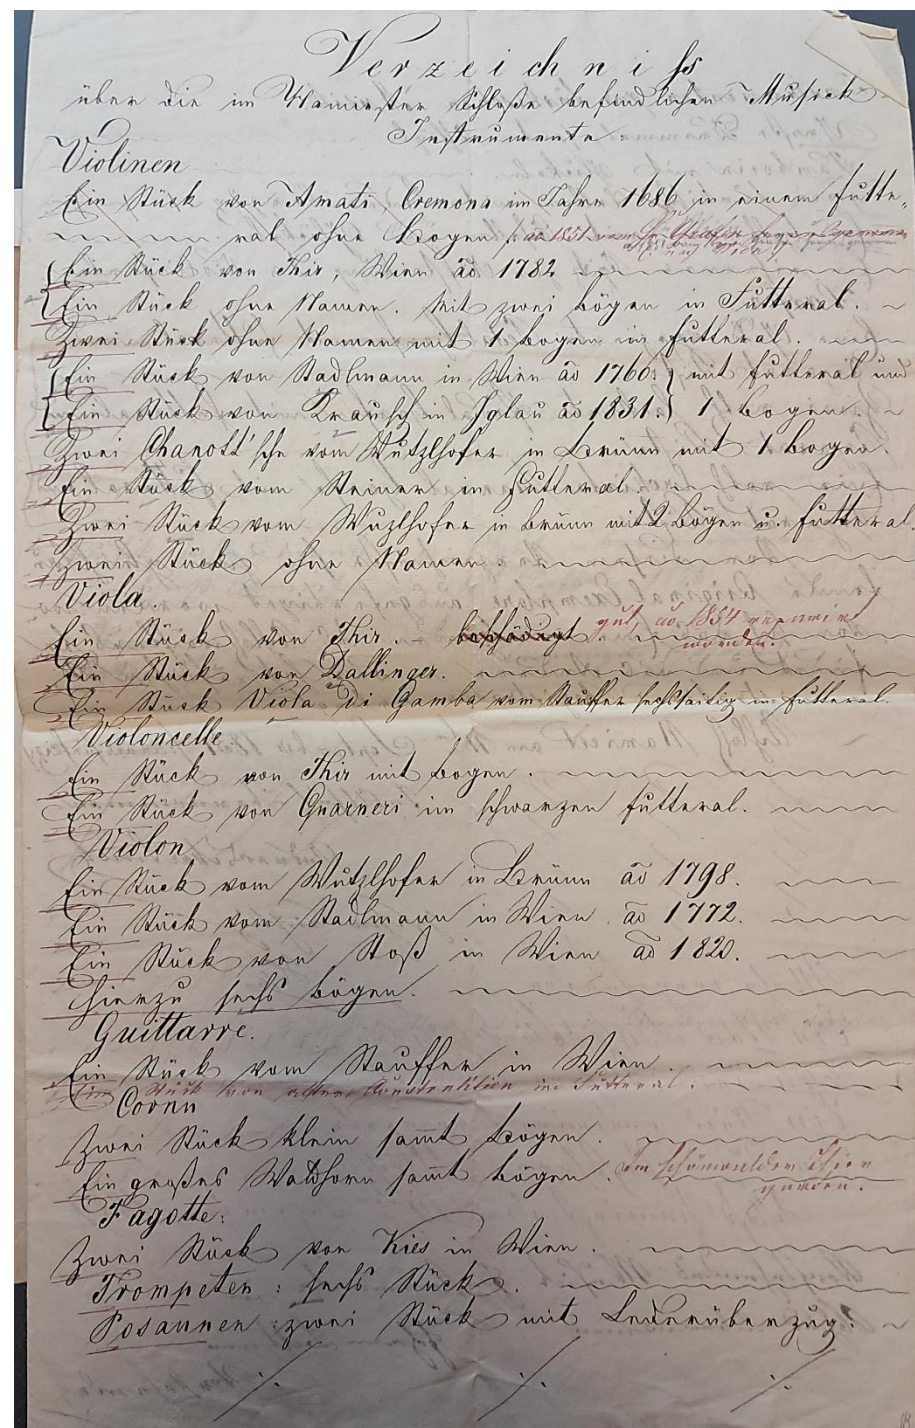 Verzeichniss
über die im Namiester Schloße befindlichen Musick
Instrumente.
Violinen
Ein Stück von Amati, Cremona im Jahre 1686 in einem Futte-
ral ohne Bogen /: ao 1851 vom H. Grafen
Ein Stück von Thir, Wien ao 1782
Ein Stück ohne Namen. Mit zwei Bögen in Futteral.
Zwei Stück ohne Namen mit 1 Bogen in Futteral.
Ein Stück von Stadlmann in Wien ao 1760. } mit Futteral und
Ein Stück von Krausch in Iglau ao 1831. } 1 Bogen.
Zwei Chanott'sche vom Wutzlhofer in Brünn mit 1 Bogen.
Ein Stück vom Steiner in Futteral.
Zwei Stück vom Wuzlhofer in Brünn mit 2 Bögen u. Futteral.
Zwei Stück ohne Namen.
Viola.
Ein Stück von Thir. – beschädigt gut, ao 1854 reparirt
worden.
Ein Stück von Dallinger.
Ein Stück Viola di Gamba vom Stauffer sechssaitig in Futteral.
Violoncelle
Ein Stück von Thir mit Bogen.
Ein Stück von Guarneri im schwarzen Futteral.
Violon
Ein Stück vom Wutzlhofer in Brünn ao 1798.
Ein Stück vom Stadlmann in Wien ao 1772.
Ein Stück von Stoß in Wien ao 1820.
Hierzu sechs Bögen.
Guittarre.
Ein Stück vom Stauffer in Wien.
Ein Stück von alter Construktion in Futteral.
Cornu
Zwei Stück klein sammt Bögen.
Ein großes Waldhorn sammt Bögen. Im
Fagotte:
Zwei Stück von Kies in Wien.
Trompeten: sechs Stück.
Posaunen: zwei Stück mit Lederüberzug.